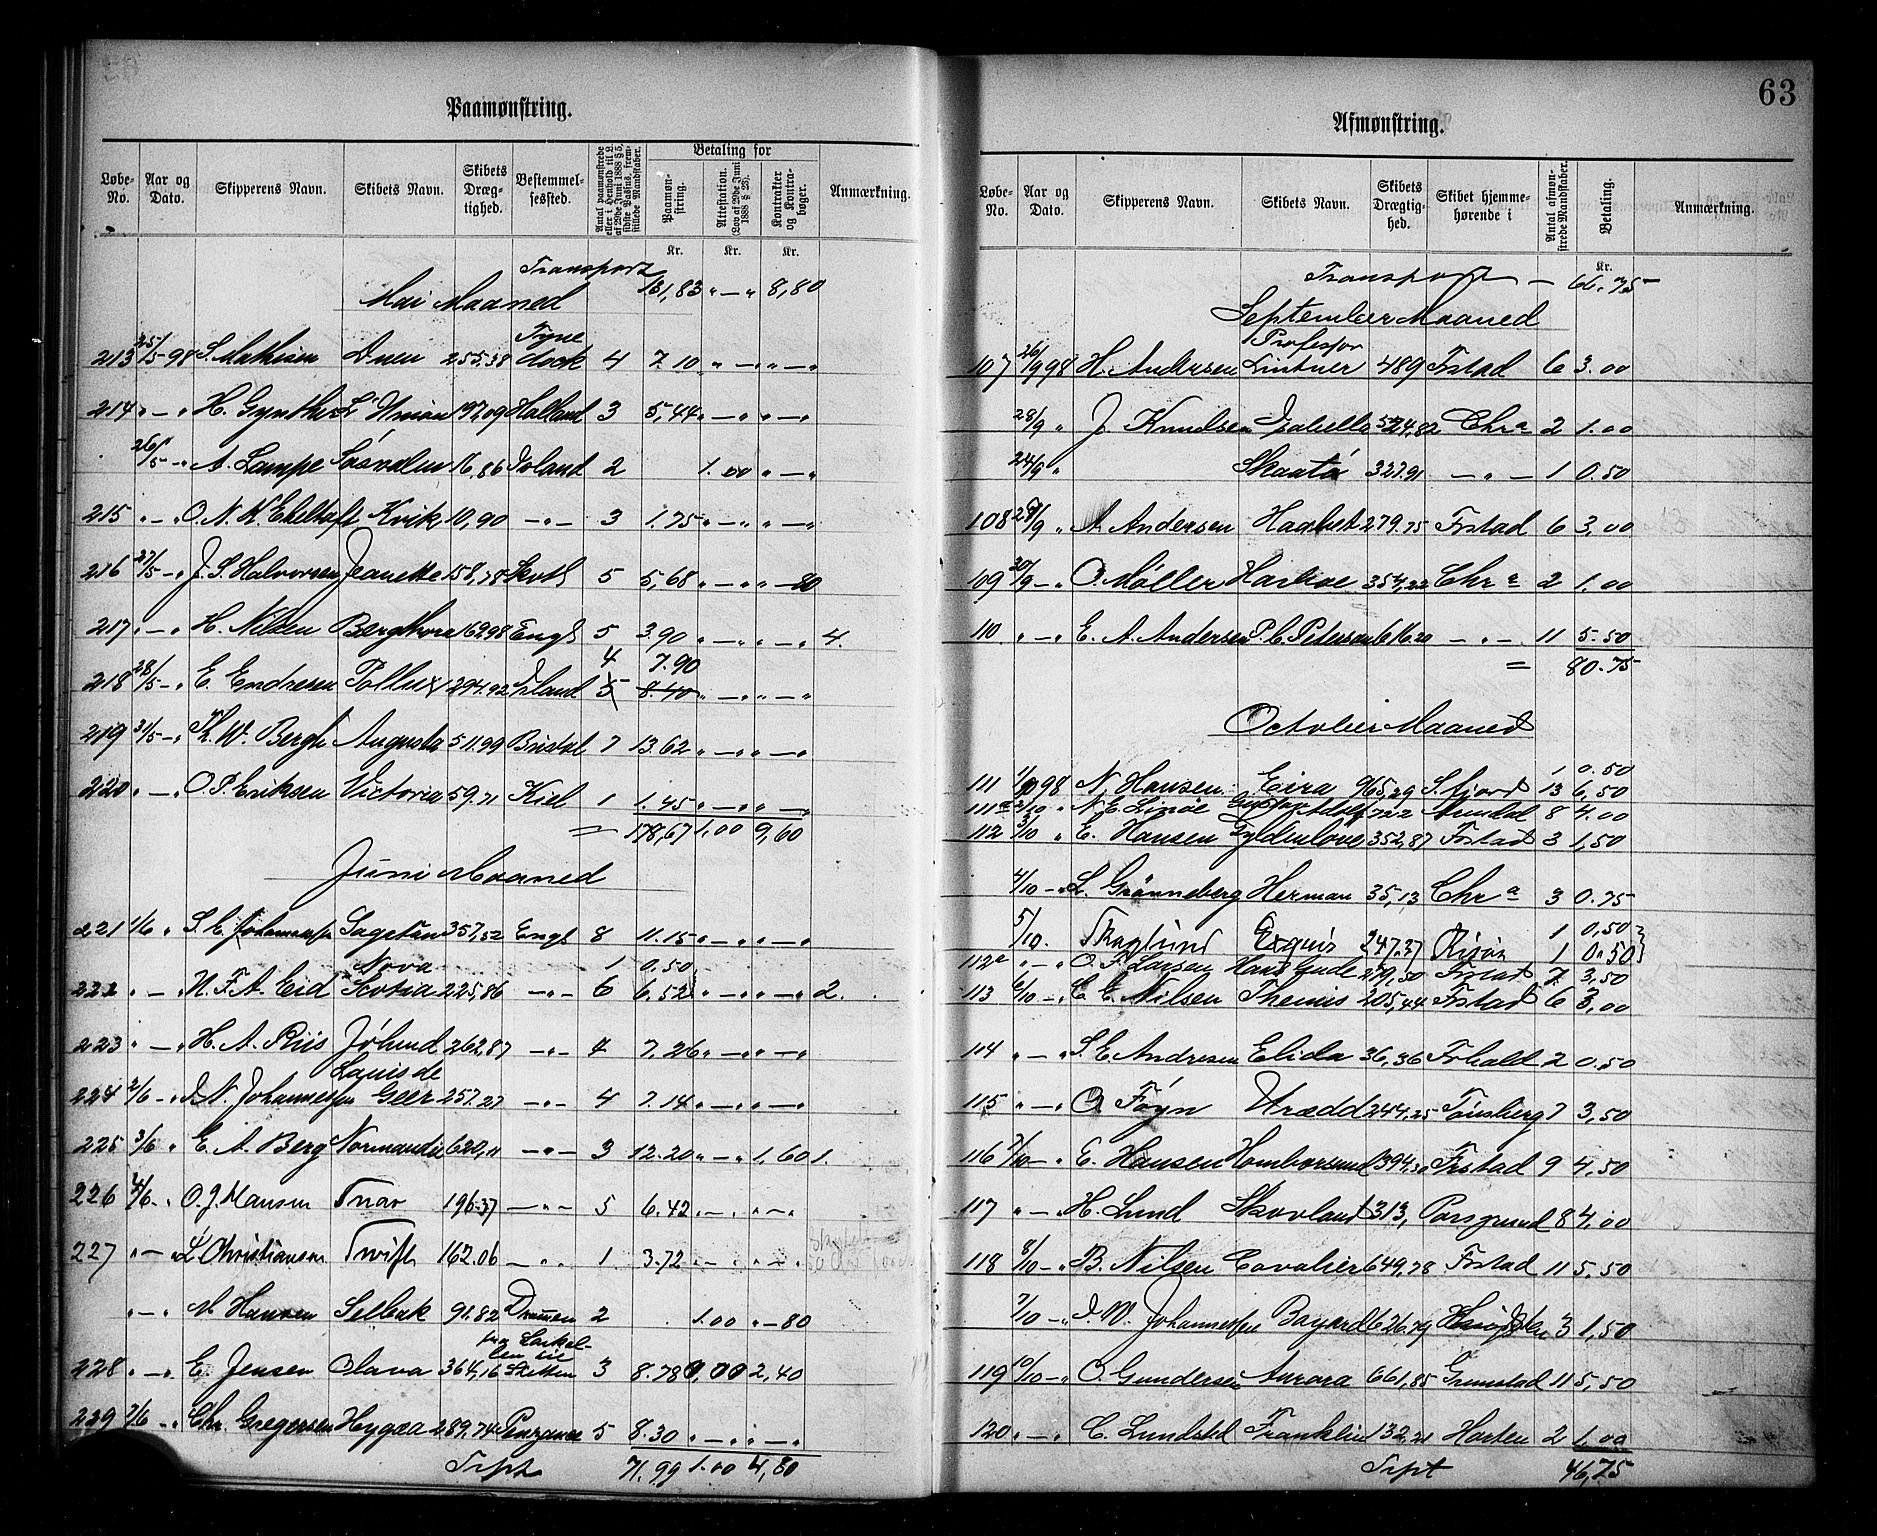 63
Paamønstring.
Løbe-No. Aar og Dato. Skipperens Navn. Skibets Navn. Skibets Dræg-tighed. Bestemmel-sessted. Antal paamønstrede eller i Henhold til L. af 29de Juni 1888 § 5, sidste Passus, frem-stillede Mandstaber. Betaling for Paamøn-string. Attestation. (Lov af 29de Juni 1888 § 25). Kontrakter og Kontra-bøger. Anmærkning.
Kr. Kr. Kr.
Transport 131,83 " — " 8,80
Mai Maaned
213 25/5-98 S. Mathisen Duen 255,38 Tyne dock 4 7.10 " — " " — "
214 " — " H. Gynther L' Union 197,09 Halland 3 5,44 " — " " — "
26/5 - " A. Lampe 16,86 2 1.00 " — "
215 " — " O. N. K. Kvik 10,90 — " — 3 1.75 " — " " — "
216 27/5 - " J. S. Halvorsen Jeanette 158,78 Skotl 5 5,68 " — " " — 80
217 " — " H. Nilsen Bergthora 169,98 Engl 5 3.90 " — " " — " 4.
4 7.90
218 28/5 - " E. Endresen Pollux 294.92 Irland 5 8.40 " — " " — "
219 31/5 - " K. W. Bergh Augusta 511.99 Bristol 7 13.62 " — " " — "
220 " — " O. P. Eriksen Victoria 59.71 Kiel 1 1.45 " — " " — "
= 178,67 1.00 9,60
Juni Maaned
221 1/6 " S. E. Johannessen 357,52 Engl 8 11.15 " — " " — "
Nova 1 0.50
222 " — " N. F. A. Eid Scotia 225,86 — " — 6 6.52 " — " " — " 2.
223 " — " H. A. Riis 262,87 — " — 4 7.26 " — " " — "
Louis de
224 2/6 - " J. N. Johannessen Geer 257.27 — " — 4 7.14 " — " " — "
225 3/6 " E. A. Berg Normandie 620,11 — " — 3 12.20 " — " 1,60 1.
226 4/6 - " O. J. Hansen 196.37 — " — 5 6.42 " — " " — "
227 " — " L. Christiansen Swift 162.06 — " " 1 3.72 " — " " — "
" — " M. Hansen Selbak 91.82 Drammen 2 1.00 " — 80
228 " — " E. Jensen Olava 364,16 fra Larkol-len til 3 8.78 0,00 2,40
229 7/6 - " Chr. Gregersen Hygæa 289.74 Penzance 5 8.30 " — " " — "
Trspt 71.99 1.00 4,80
Afmønstring.
Løbe-No. Aar og Dato. Skipperens Navn. Skibets Navn. Skibets Drægtig-hed. Skibet hjemme-hørende i Antal afmøn-strede Mandstaber. Betaling. Anmærkning.
Kr.
Transport — 66.75
September Maaned
Professor
107 26/9 98 H. Andersen Lintner 489 Frstad 6 3.00
28/9 " J. Knudsen Isabella 524,82 Chr a 2 1.00
24/9 " Skaatø 327.91 — " — 1 0.50
108 28/9 " A. Andersen Haabet 279.75 Frstad 6 3,00
109 20/9 - " O. Møller 354,22 Chr a 2 1.00
110 " — " E. A. Andersen P. C. Petersen 616.20 — " — 11 5.50
= 80.75
October Maaned
1 0.50
111 1/10 98 N. Hansen Eira 965,29 S.fjord 13 6,50
111a 2/10 " N. E. Linöe Gustav Adolf 722 Arendal 8 4.00
112 3/10 " E. Hansen Gyldenløve 352,87 Frstad 3 1,50
4/10 - " L. Grønneberg Herman 35,13 Chr a 3 0.75
1 0,50
5/10. Skoglund Exquis 247.37 Risør 1 0.50
112a " — " O. F. Larsen Hans Gude 279,50 Frstad 7 3,50
113 6/10 - " C. E. Nilsen Themis 205,44 Frstad 6 3,00
114 " — " S. E. Andresen Elida 36,36 Frhald 2 0.50
115 " — " O. Føyn Urædd 244,25 Tønsberg 7 3,50
116 7/10 - " E. Hansen Homborsund 394.30 Frstad 9 4,50
117 " — " H. Lund Skovland 313, Porsgrund 8 4.00
118 8/10 - " B. Nilsen Cavalier 649,78 Frstad 11 5.50
7/10 - " J. W. Johannessen Bayard 626.79 3 1,50
119 10/10 - " O. Gundersen Aurora 661,85 Grimstad 11 5,50
120 " — " C. Lundsted Franklin 132,21 Horten 2 1.00
Trspt 46,75